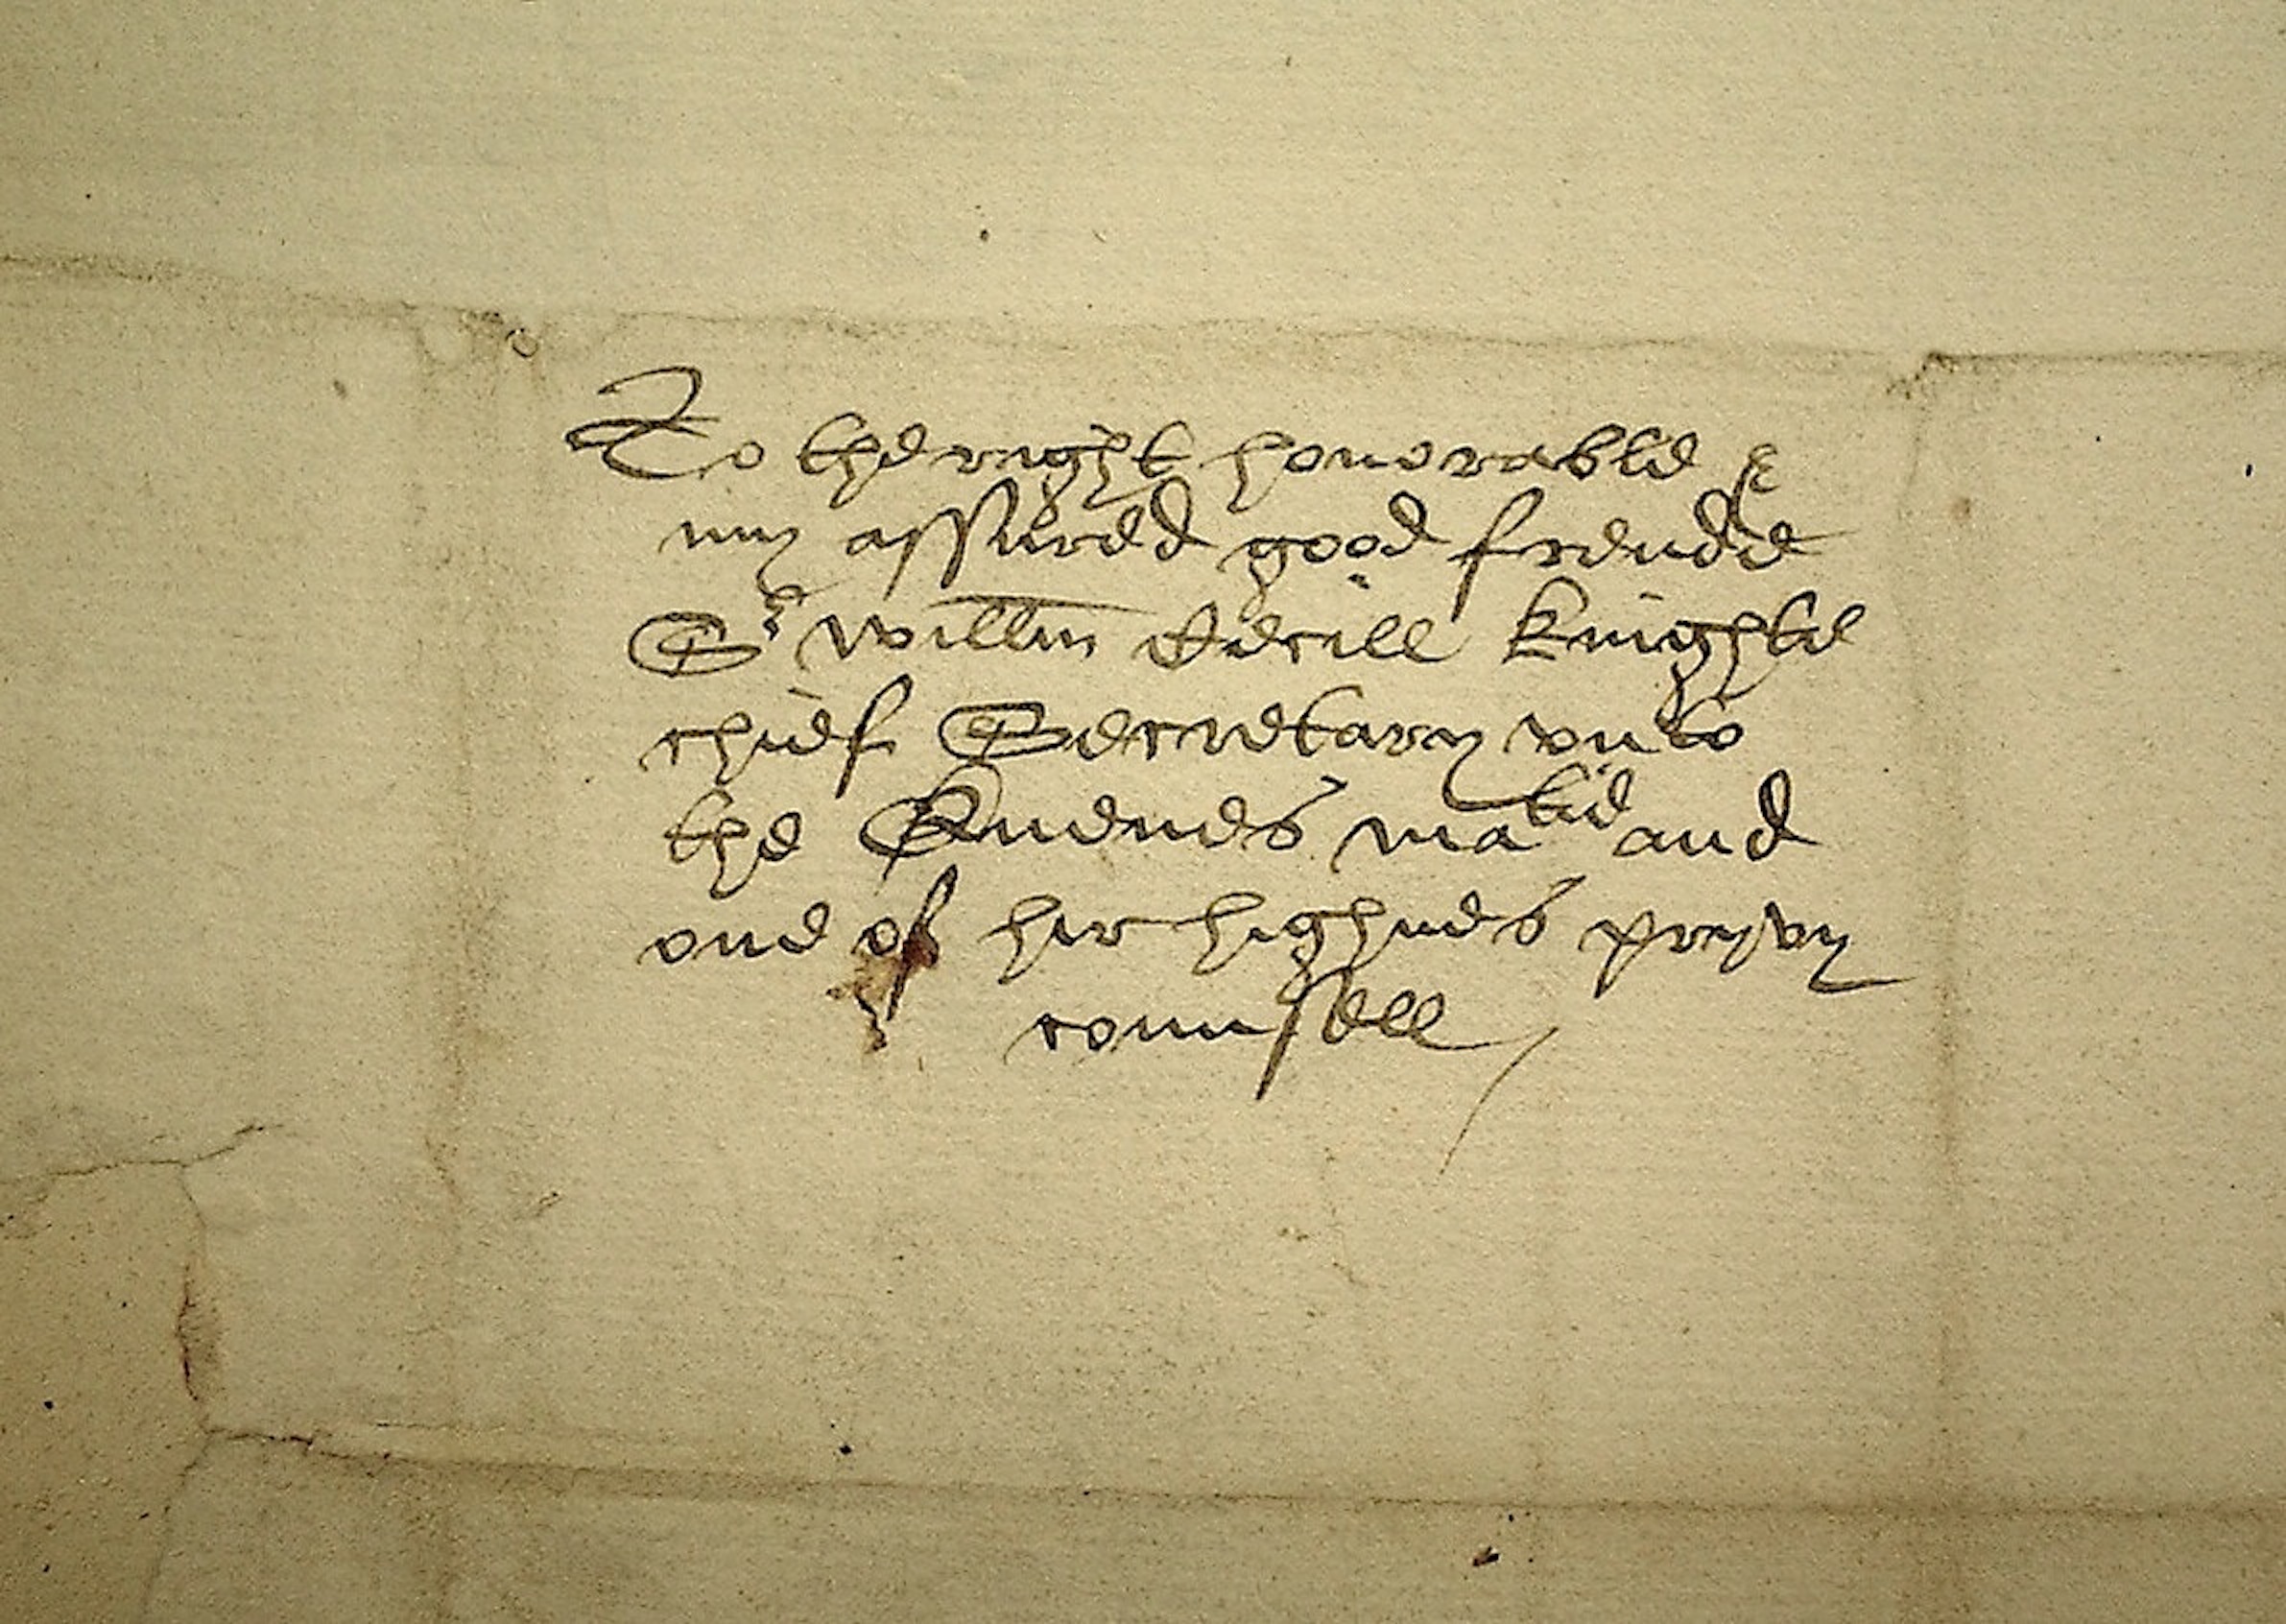 To the right honorable &
my assured good frende
Sr Willm Cecill knighte
chief Secretary vnto
the Quenes matie and
one of her highnes pryvy
counsell